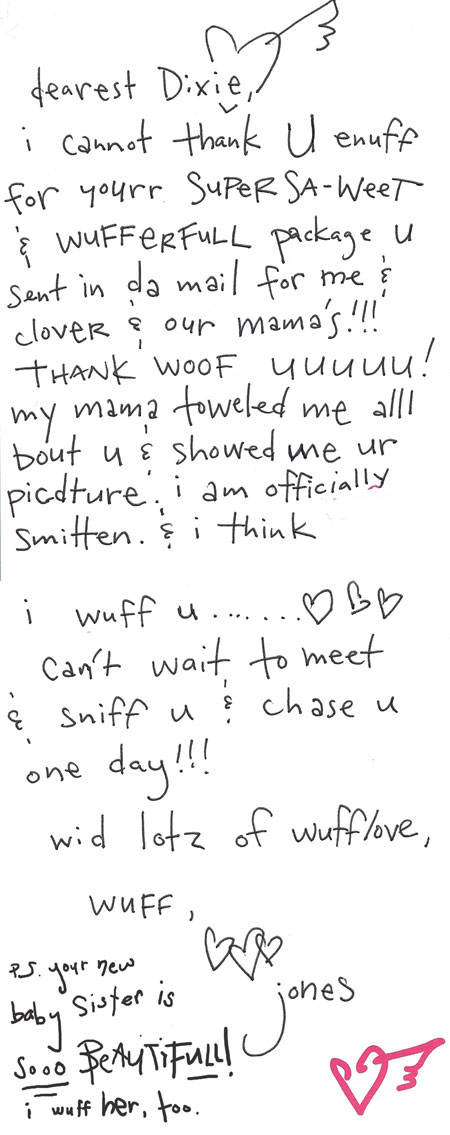 dearest Dixie,
i cannot thank U enuff
for yourr SUPER SA-WEET
& WUFFERFULL package u
sent in da mail for me &
clover & our mama's!!!
THANK WOOF uuuuu!
my mama toweled me alll
bout u & showed me ur
picdture. i am officially
smitten. & i think
i wuff u.......
can't wait to meet
& sniff u & chase u
one day!!!
wid lotz of wufflove,
WUFF,
jones
P.S. your new
baby sister is
sooo BEAUTIFULL!
i wuff her, too.